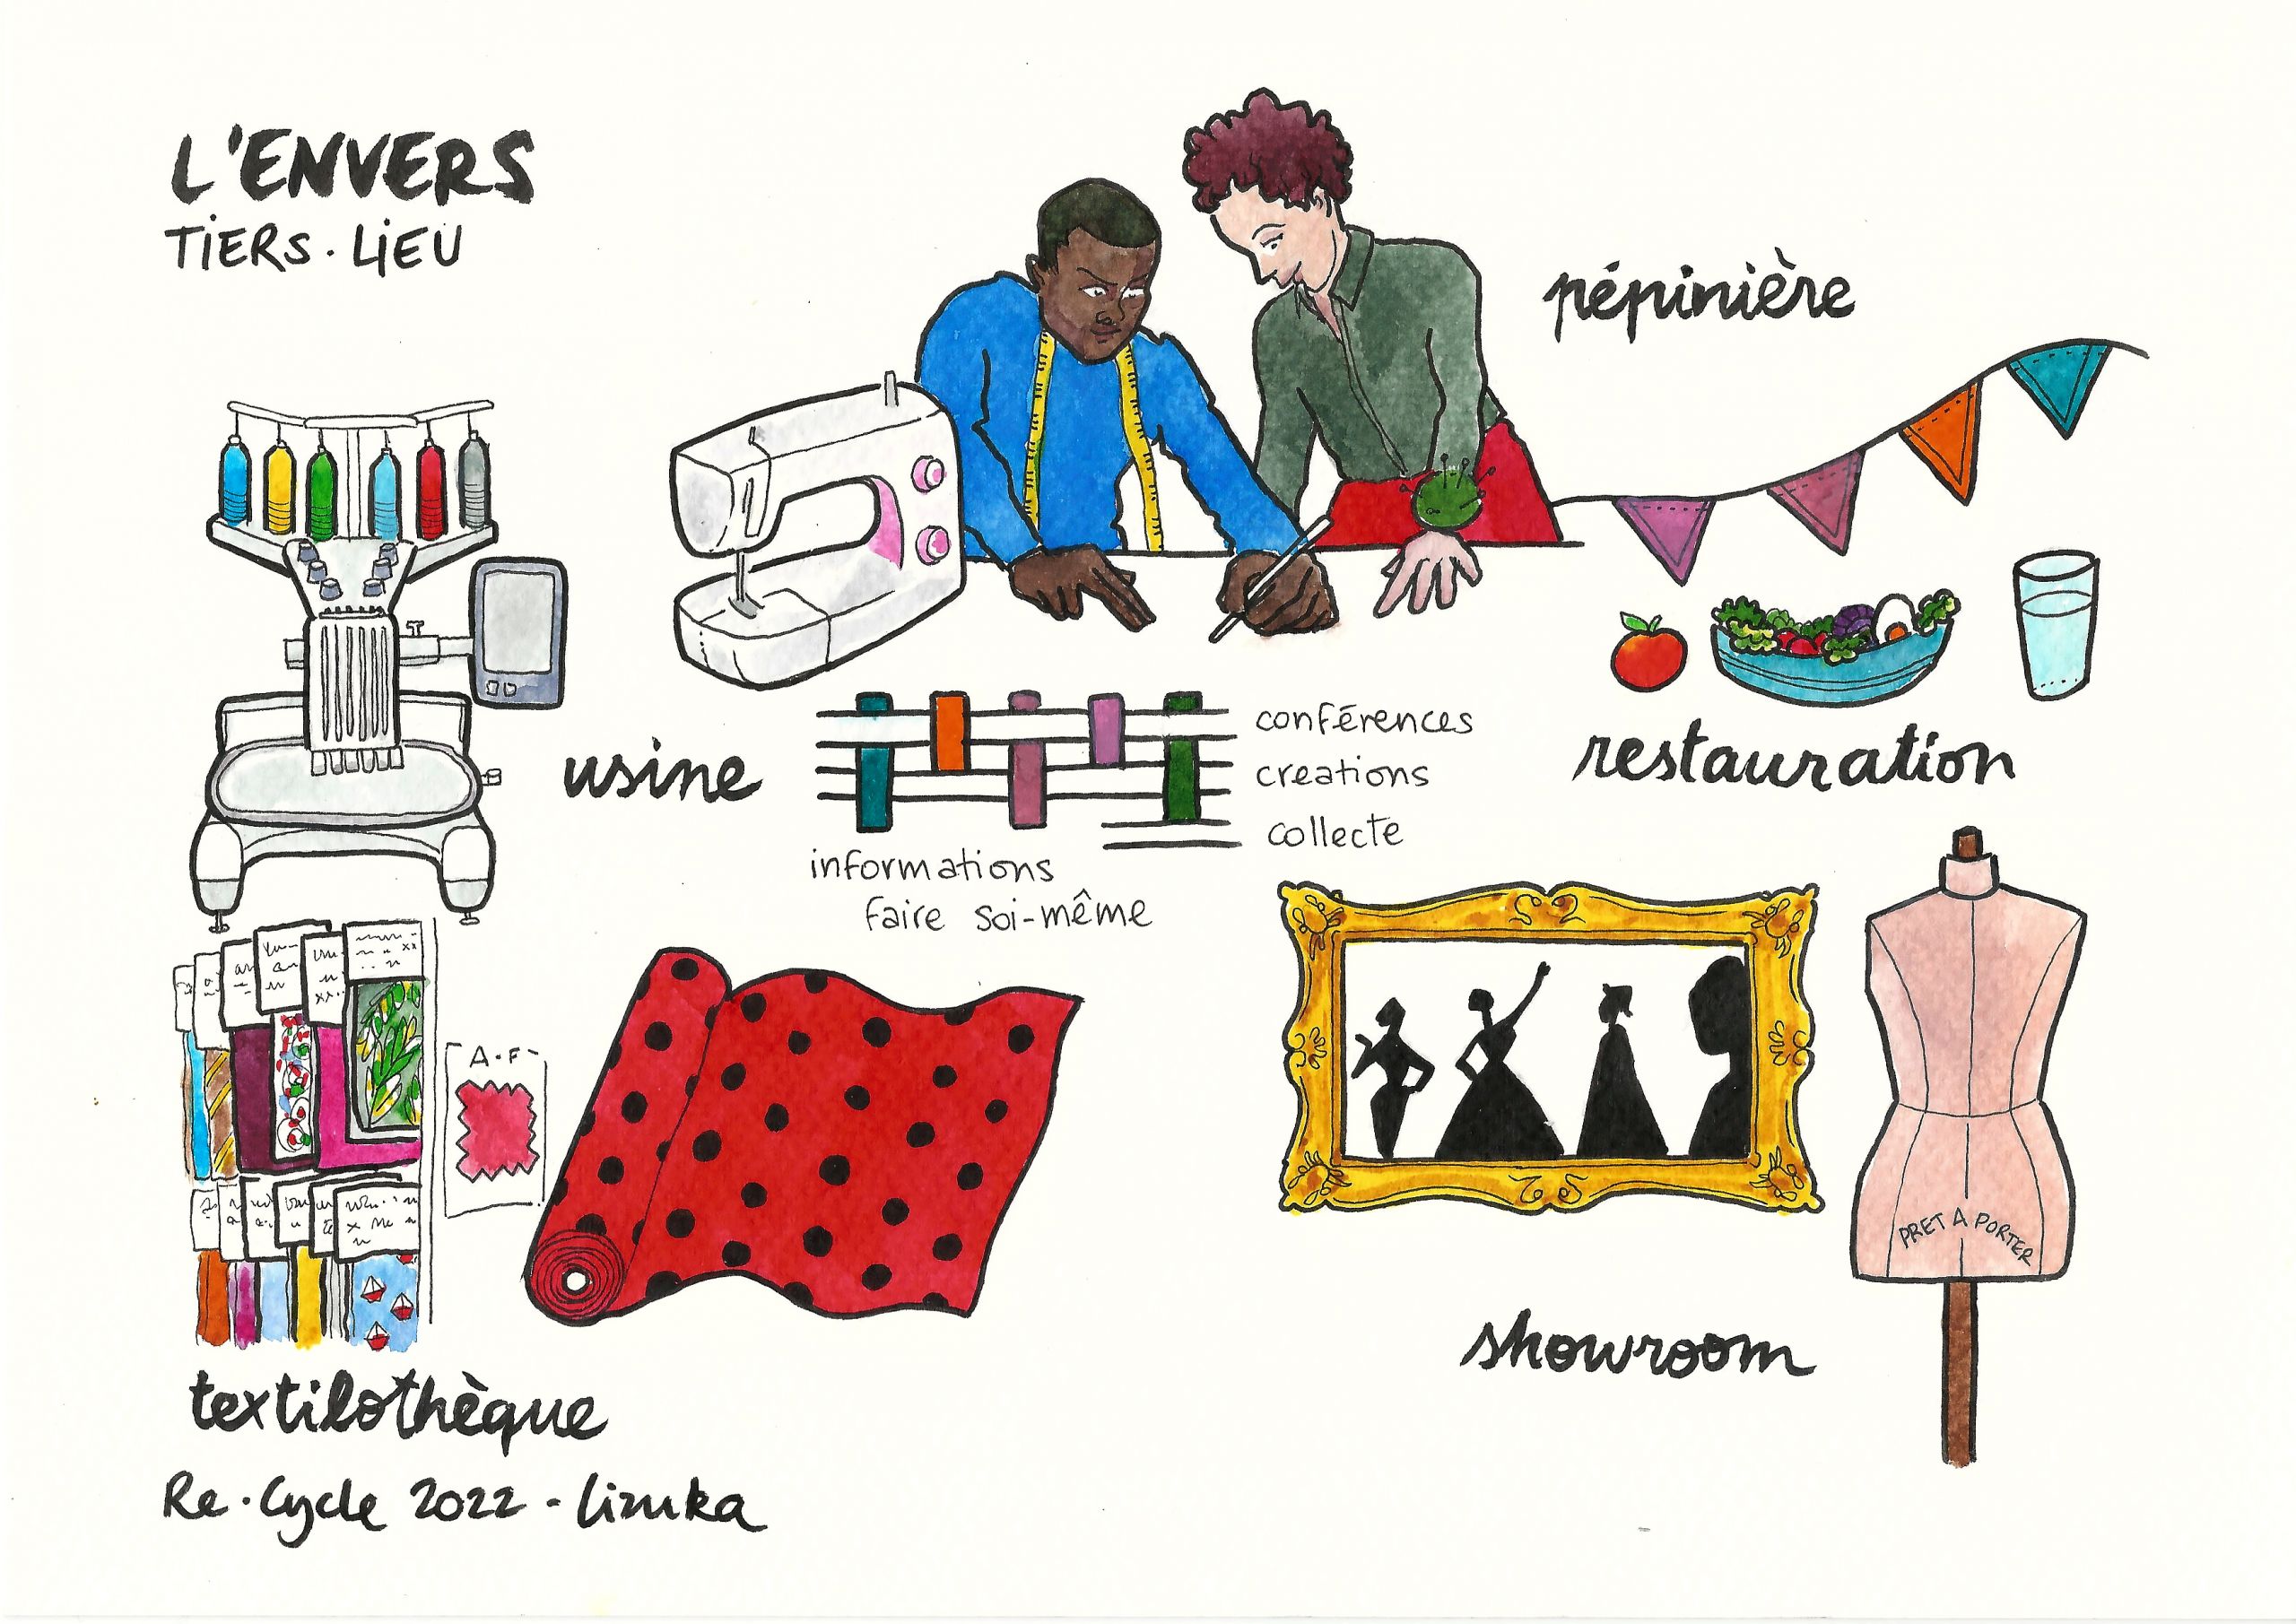 L'ENVERS
TIERS·LIEU
pépinière
usine
conférences
creations
collecte
informations
faire soi-même
restauration
A·F
PRET A PORTER
showroom
textilothèque
Re·Cycle 2022 - Lizuka